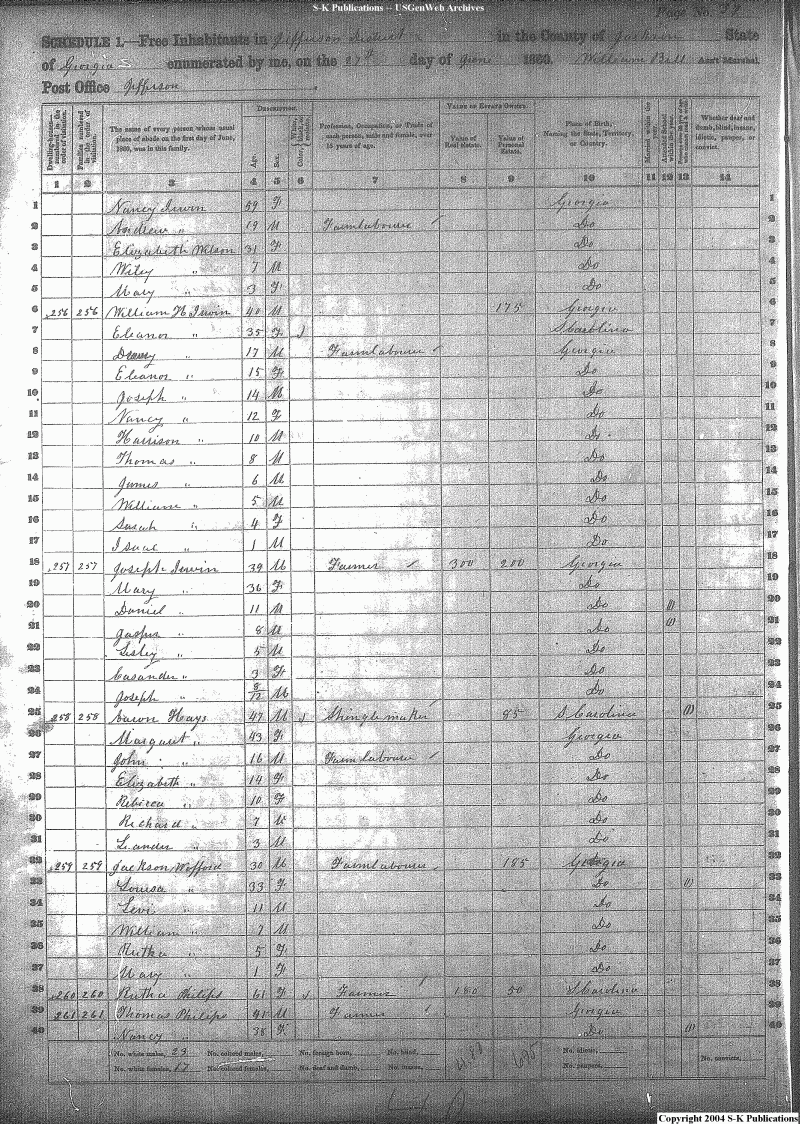 S-K Publications -- USGenWeb Archives
Page No. 37
SCHEDULE 1.—Free Inhabitants in Jefferson District in the County of Jackson State
of Georgia enumerated by me, on the 27th day of June 1860. William Bell Ass't Marshal.
Post Office Jefferson
Dwelling-houses—numbered in the order of visitation.
Families numbered in the order of visitation.
The name of every person whose usual place of abode on the first day of June, 1860, was in this family.
DESCRIPTION.
Age.
Sex.
Profession, Occupation, or Trade of each person, male and female, over 15 years of age.
VALUE OF ESTATE OWNED.
Value of Real Estate.
Value of Personal Estate.
Place of Birth, Naming the State, Territory, or Country.
Married within the year.
Attended School within the year.
Whether deaf and dumb, blind, insane, idiotic, pauper, or convict.
1 2 3 4 5 6 7 8 9 10 11 12 13 14
1 Nancy Irwin 59 F Georgia 1
2 Andrew " 19 M Farmlabourer Do 2
3 Elizabeth Wilson 31 F Do 3
4 Wiley " 7 M Do 4
5 Mary " 3 F Do 5
6 256 256 William H Irwin 40 M 175 Georgia 6
7 Eleanor " 35 F S Carolina 7
8 " 17 M Farmlabourer Georgia 8
9 Eleanor " 15 F Do 9
10 Joseph " 14 M Do 10
11 Nancy " 12 F Do 11
12 Harrison " 10 M Do 12
13 Thomas " 8 M Do 13
14 James " 6 M Do 14
15 William " 5 M Do 15
16 Sarah " 4 F Do 16
17 Isaac " 1 M Do 17
18 257 257 Joseph Irwin 39 M Farmer 300 200 Georgia 18
19 Mary " 36 F Do 19
20 Daniel " 11 M Do (1) 20
21 " 8 M Do (1) 21
22 Lesley " 5 M Do 22
23 Casander " 3 F Do 23
24 Joseph " 8/12 M Do 24
25 258 258 Aaron Hays 47 M Shinglemaker 85 S Carolina (1) 25
26 Margaret " 43 F Georgia 26
27 John " 16 M Farmlabourer Do 27
28 Elizabeth " 14 F Do 28
29 Rebecca " 10 F Do 29
30 Richard " 7 M Do 30
31 Leander " 3 M Do 31
32 259 259 Jackson Wofford 30 M Farmlabourer 185 Georgia 32
33 Louisa " 33 F Do (1) 33
34 Levi " 11 M Do 34
35 William " 7 M Do 35
36 Rutha " 5 F Do 36
37 Mary " 1 F Do 37
38 260 260 Rutha Philips 61 F Farmer 180 50 S Carolina 38
39 261 261 Thomas Philips 41 M Farmer Georgia 39
40 Nancy " 38 F Do (1) 40
No. white males, 23 No. colored males, No. foreign born, No. blind, 480 695 No. idiotic, No. convicts,
No. white females, 17 No. colored females, No. deaf and dumb, No. insane, No. paupers,
Copyright 2004 S-K Publications